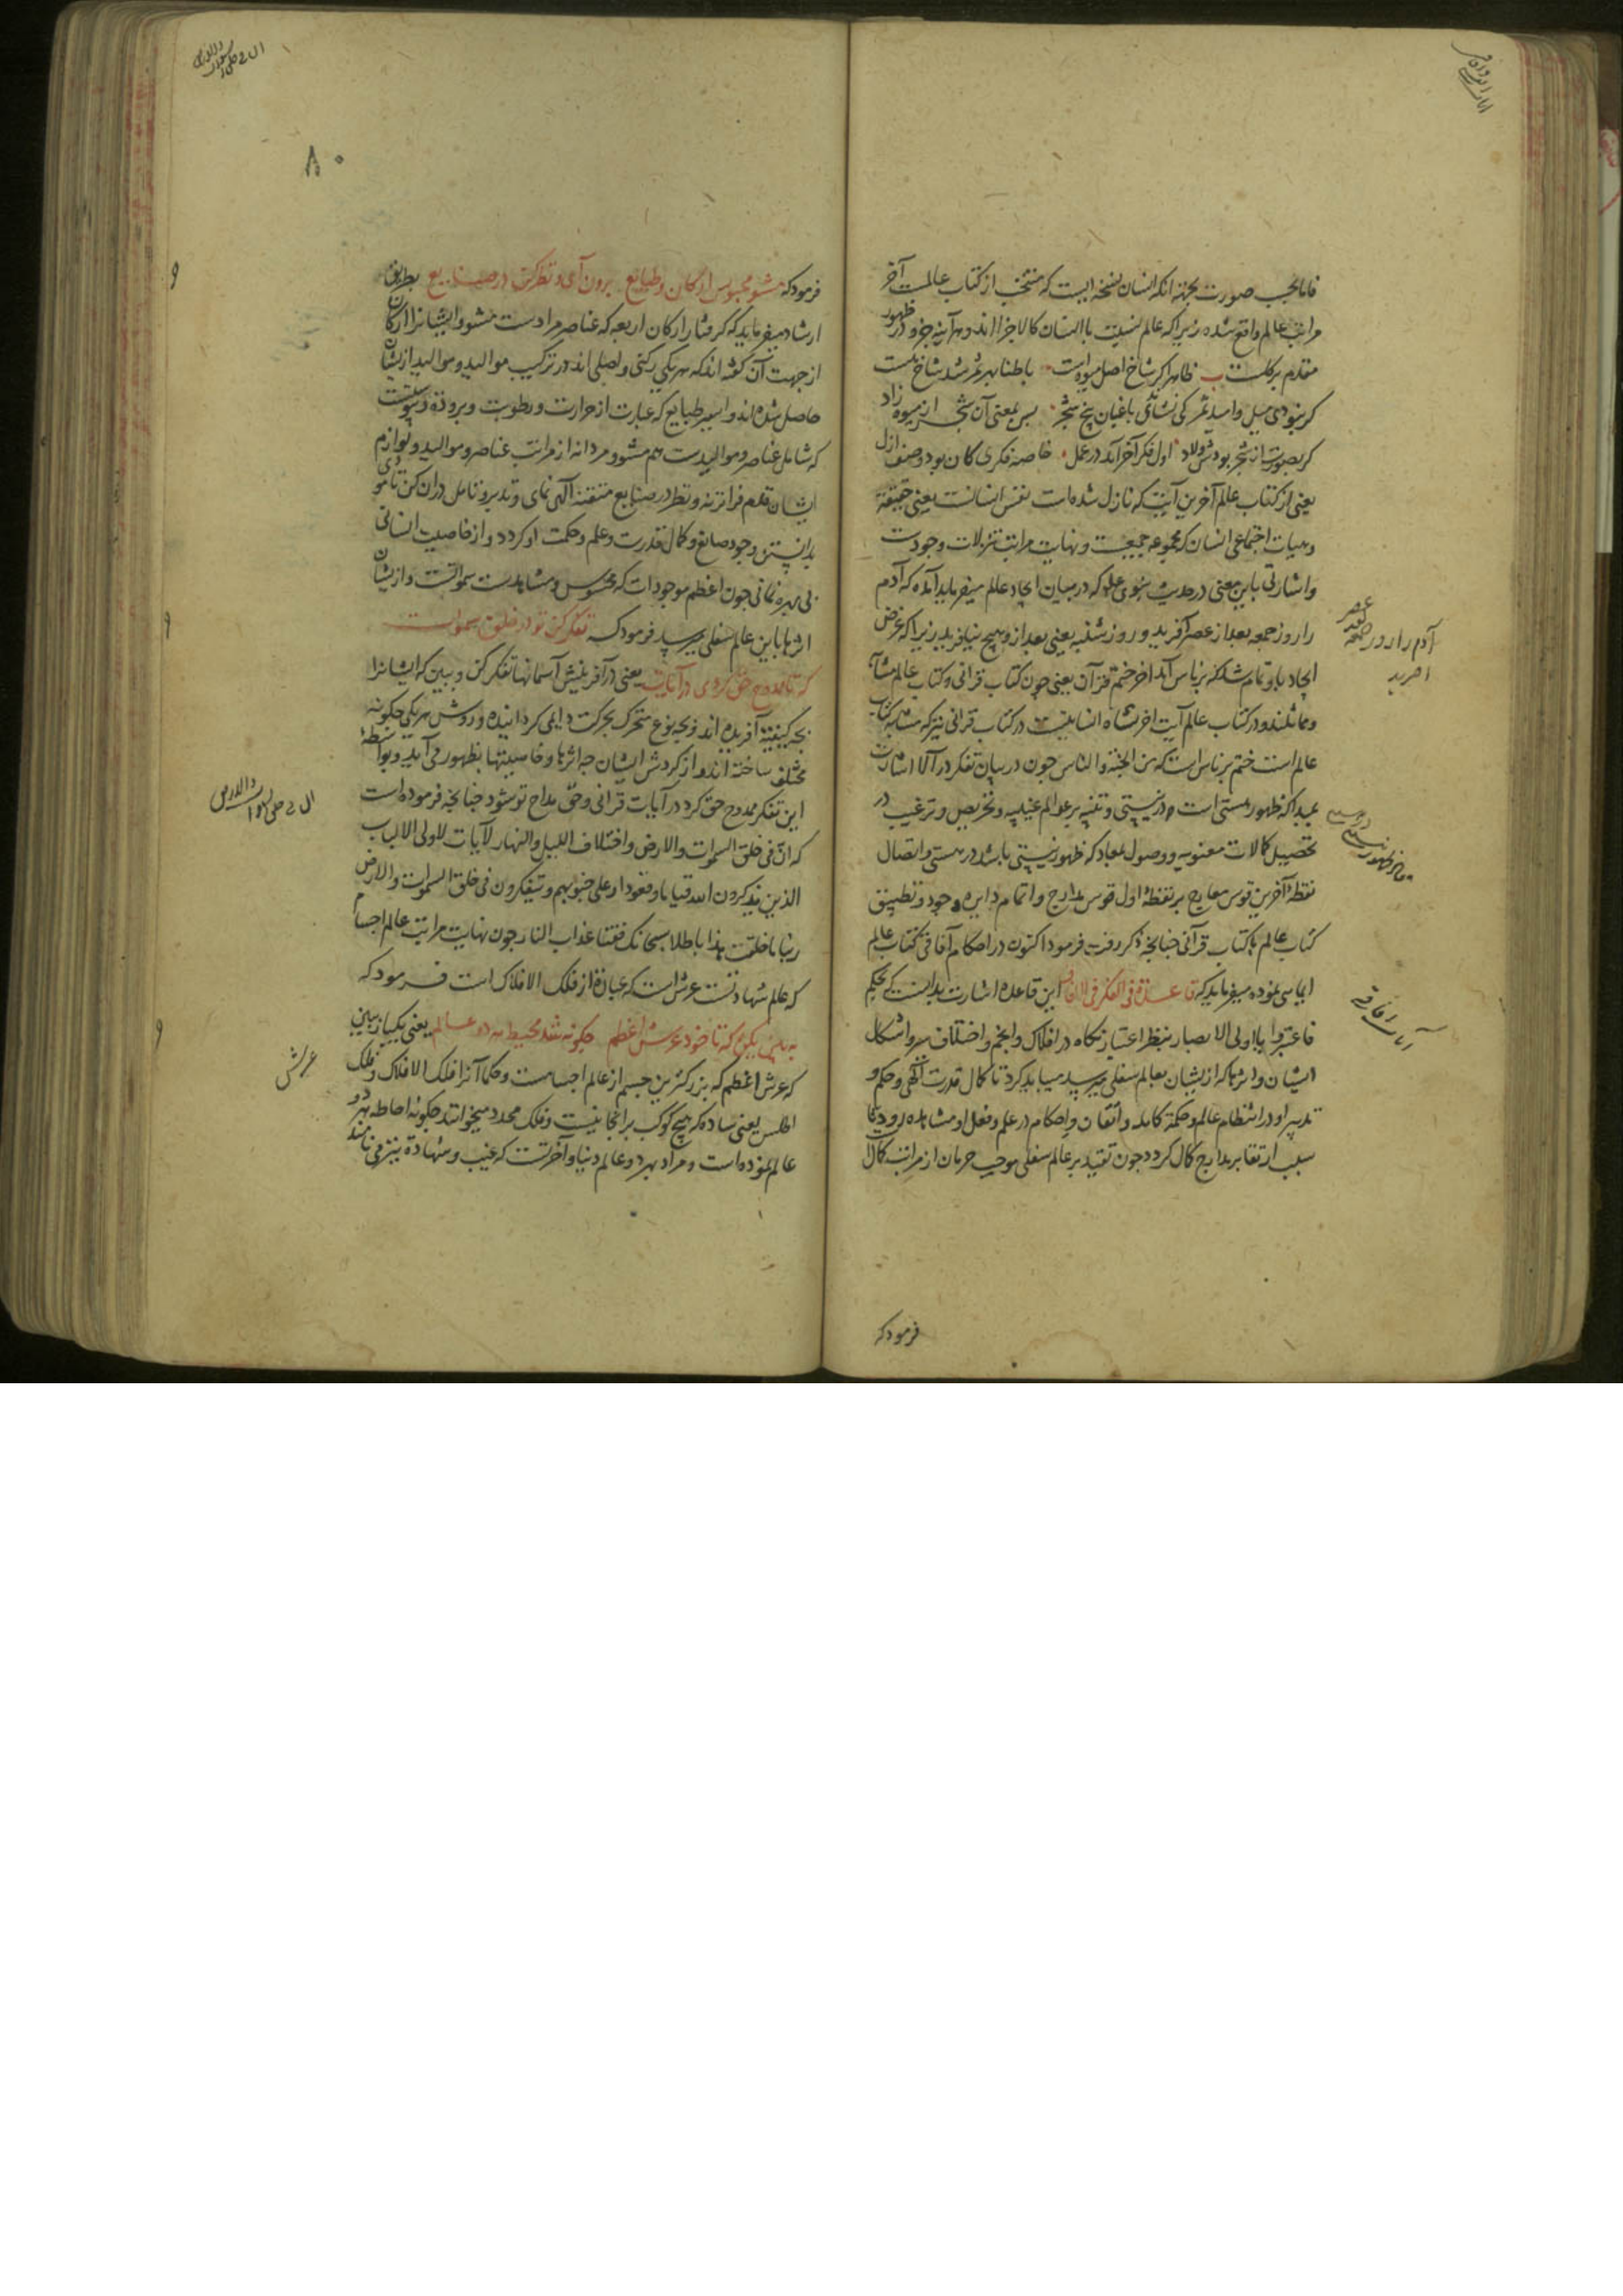 فاما بحسب صورت بجهة انکه انسان نسخه ایست که منتخب از کتاب عالمست آخر
مراتب عالم واقع شده زیرا که عالم نسبت با انسان کالاجزا اند و هر آینه جزو در ظهور
مقدم بر کلست ب ظاهرا کر شاخ اصل میوه است باطنا بهر ثمر شد شاخ هست
کر نبودی میل و امید ثمر کی نشاندی باغبان بیخ شجر پس بمعنی آن شجر از میوه زاد
کر بصورت از شجر بودش ولاد اول فکر آخر آمد در عمل خاصه فکری کان بود وصف ازل
یعنی از کتاب عالم آخرین آیتی که نازل شده است نفس انسانست یعنی حقیقة
و هیات اجتماعی انسان که مجموعه جمیعت و نهایت مراتب تنزلات وجودست
و اشارتی باین معنی در حدیث نبوی علم که در بیان ایجاد عالم میفرماید آمده که آدم
را روز جمعه بعد از عصر آفرید و روز شنبه یعنی بعد از و هیچ نیافرید زیرا که غرض
ایجاد باو تمام شد که بر ناس آمد آخر ختم قرآن یعنی چون کتاب قرانی و کتاب عالم
و مماثلند و در کتاب عالم آیت اخر نشاه انسانیت در کتاب قرانی نیز که مشابه کتاب
عالم است ختم بر ناس است که من الجنة و الناس چون در بیان تفکر در آلا اشارت
بمبدا که ظهور هستی است در نیستی و تنبیه بر عوالم غیبیه و تحریص و ترغیب در
تحصیل کمالات معنویه و وصول بمعاد که ظهور نیستی باشد در هستی و اتصال
نقطه آخرین قوس معارج بر نقطه اول قوس مدارج و اتمام دایره وجود و تطبیق
کتاب عالم با کتاب قرآنی چنانچه ذکر رفت فرمود اکنون در احکام آفاقی کتاب عالم
ایمایی نموده میفرماید که قاعدة فی الفکر فی الافاق این قاعده اشارت بدانست که بحکم
فاعتبروا یا اولی الابصار بنظر اعتبار نکاه در افلاک و انجم و اختلاف سیر و اشکال
ایشان و اثرها که از ایشان بعالم سفلی میرسد میباید کرد تا کمال قدرت الهی و حکم و
تدبیر او در انتظام عالم و حکمة کامله و اتقان و احکام در علم و فعل او مشاهده رود و تا
سبب ارتقا بر مدارج کمال کردد چون تقید بر عالم سفلی موجب حرمان از مراتب کمال
فرمود که
آدم را روز جمعه بعد عصر
افرید
آیات آفاقیه
۸۰
فرمود که مشو محبوس ارکان و طبایع برون آی و نظر کن در صنایع بطریق
ارشاد میفرماید که کرفتار ارکان اربعه که عناصر مرادست مشو و ایشانرا ارکان
از جهت آن گفته اند که هر یکی رکنی و اصلی اند در ترکیب موالید و موالید از ایشان
حاصل شده اند و اسیر طبایع که عبارت از حرارت و رطوبت و برودة و یبوست
که شامل عناصر و موالیدست هم مشو و مردانه از مراتب عناصر و موالید و لوازم
ایشان قدم فراتر نه و نظر در صنایع متقنه الهی نمای و تدبر و تامل در ان کن تا مودی
بدانستن وجود صانع و کمال قدرت و علم و حکمت او کردد و از خاصیت انسانی
بی بهره نمانی چون اعظم موجودات که محسوس و مشاهدست سمواتست و از ایشان
اثرها باین عالم سفلی میرسد فرمود که تفکر کن تو در خلق سموات
که تا ممدوح حق کردی در آیات یعنی در آفرینش آسمانها تفکر کن و ببین که ایشانرا
بچه کیفیت آفریده اند و بچه نوع متحرک بحرکت دایمی کردانیده و روش هر یکی چکونه
مختلف ساخته اند و از کردش ایشان چه اثرها و خاصیتها بظهور می آید و بواسطه
این تفکر ممدوح حق کرد در آیات قرانی و حق مداح تو شود چنانچه فرموده است
که ان فی خلق السموات و الارض و اختلاف اللیل و النهار لآیات لاولی الالباب
الذین یذکرون الله قیاما و قعودا و علی جنوبهم و یتفکرون فی خلق السموات و الارض
ربنا ما خلقت هذا باطلا سبحانک فقنا عذاب النار چون نهایت مراتب عالم اجسام
که عالم شهادتست عرش است که عبارة از فلک الافلاک است فرمود که
به بین یکره که تا خود عرش اعظم چکونه شد محیط هر دو عالم یعنی یکبار ببین
که عرش اعظم که بزرکترین جسیم از عالم اجسامست و حکما آنرا فلک الافلاک و فلک
اطلس یعنی ساده که هیچ کوکب بر انجا نیست و فلک محدد میخوانند چکونه احاطه هر دو
عالم نموده است و مراد بهر دو عالم دنیا و آخرتست که غیب و شهادة نیز می نامند
عرش